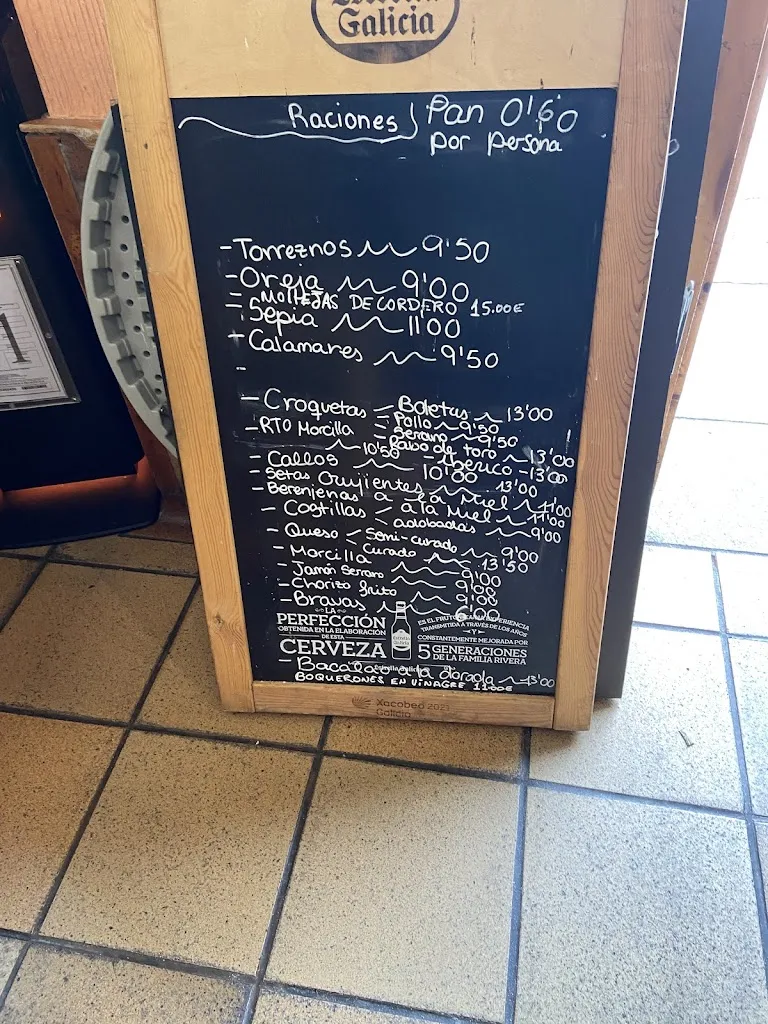 Galicia
Raciones Pan 0'60
por persona
- Torreznos 9'50
- Oreja 9'00
- MOLLEJAS DE CORDERO 15.00€
- Sepia 11'00
- Calamares 9'50
-
- Croquetas < Boletus 13'00
Pollo 9'50
Serrano 9'50
Rabo de toro 13'00
Iberico - 13'00
- RTO Morcilla 10'50
- Callos 10'00
- Setas Crujientes 13'00
- Berenjenas a la Miel 11'00
- Costillas < a la Miel 11'00
adobadas 9'00
- Queso < Semi-curado 9'00
curado 13'50
- Morcilla 9'00
- Jamón Serrano 9'00
- Chorizo frito 9'00
- Bravas 6'00
LA
PERFECCIÓN
OBTENIDA EN LA ELABORACIÓN
DE ESTA
CERVEZA
TRANSMITIDA A TRAVÉS DE LOS AÑOS
Y
CONSTANTEMENTE MEJORADA POR
5 GENERACIONES
DE LA FAMILIA RIVERA
- Bacalao a la dorada 13'00
BOQUERONES EN VINAGRE 11.00€
Xacobeo 2021
Galicia